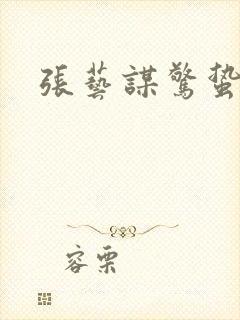 張藝謀驚蛰
容栗